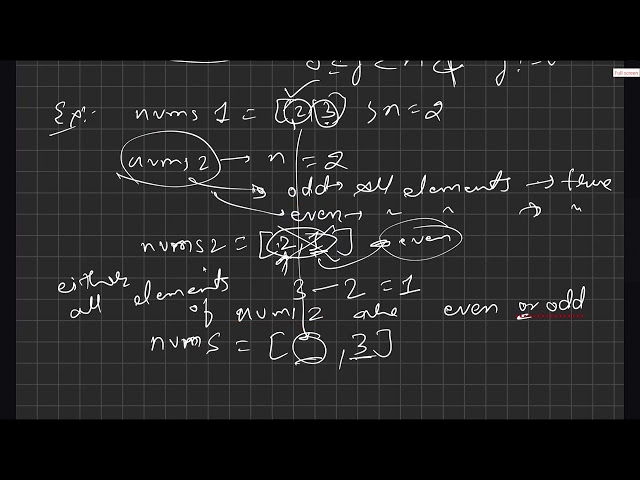 Full screen
Ex:- nums 1 = [2, 3] , n = 2
nums 2 → n = 2
→ odd → all elements → true
→ even → " " → "
nums 2 = [2, 1] even
3 - 2 = 1
either all elements of nums 2 are even or odd
nums = [ , 3]